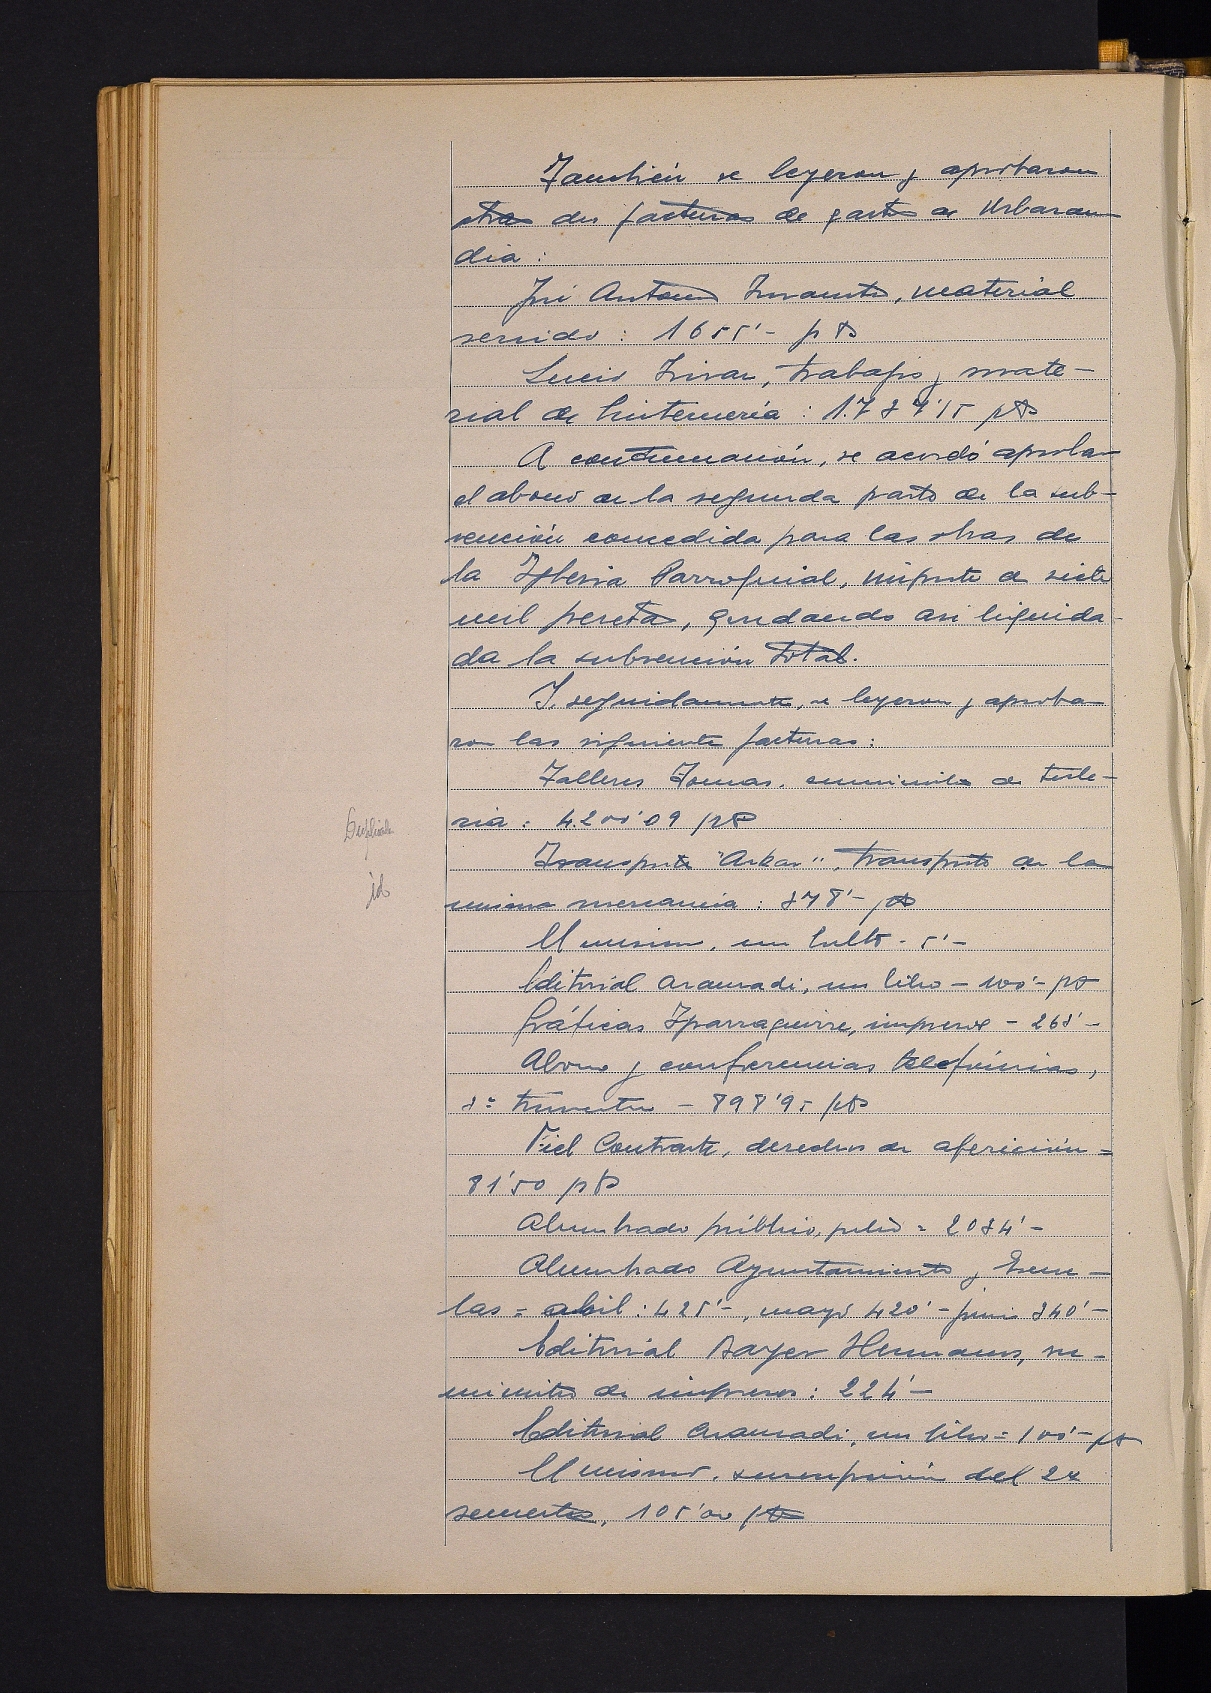 También se leyeron y aprobaron
otras dos facturas de gastos de Urbaran-
dia :
José Antonio , material
servido : 1655'- pts
Lucio , trabajos y mate-
rial de linternería : 1.737'15 pts
A continuación, se acordó aprobar
el abono de la segunda parte de la sub-
vención concedida para las obras de
la Iglesia Parroquial, importe de siete
mil pesetas, quedando así liquida-
da la subvención total.
Y, seguidamente, se leyeron y aproba-
ron las siguientes facturas :
Talleres Tomas, suministro de
: 4.200'09 pts
Duplicada
Transportes "Askar", transporte de la
id
misma mercancía : 378'- pts
El mismo, un bulto - 5'-
Editorial Aranzadi, un libro - 100'- pts
Gráficas Yparraguirre, impresos - 265'-
Abono y conferencias telefónicas,
3º trimestre - 898'95 pts
Fiel Contraste, derechos de afericiòn =
81'50 pts
Alumbrado público, julio = 2034'-
Alumbrado Ayuntamiento y Escue-
las = abril : 425'-, mayo 420'- junio 340'-
Editorial Bayer Hermanos, su-
ministro de impresos : 224'-
Editorial Aranzadi, un libro = 100'- pts
El mismo, suscripción del 2º
semestre, 105'00 pts